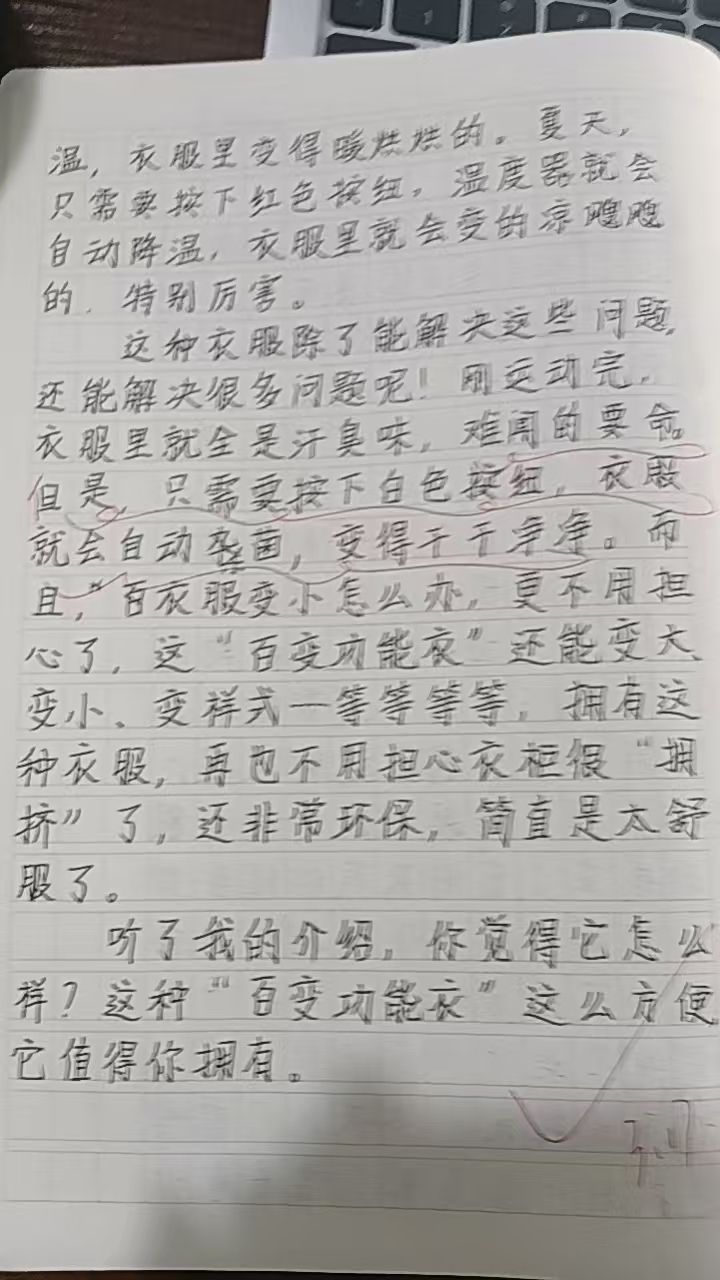 温，衣服里变得暖烘烘的。夏天，
只需要按下红色按纽，温度器就会
自动降温，衣服里就会变的凉飕飕
的，特别厉害。
这种衣服除了能解决这些问题，
还能解决很多问题呢！刚运动完，
衣服里就全是汗臭味，难闻的要命。
但是，只需要按下白色按纽，衣服
就会自动杀菌，变得干干净净。而
且，"百衣服变小怎么办，更不用担
心了，这"百变功能衣"还能变大、
变小、变样式一等等等等，拥有这
种衣服，再也不用担心衣柜很"拥
挤"了，还非常环保，简直是太舒
服了。
听了我的介绍，你觉得它怎么
样？这种"百变功能衣"这么方便
它值得你拥有。